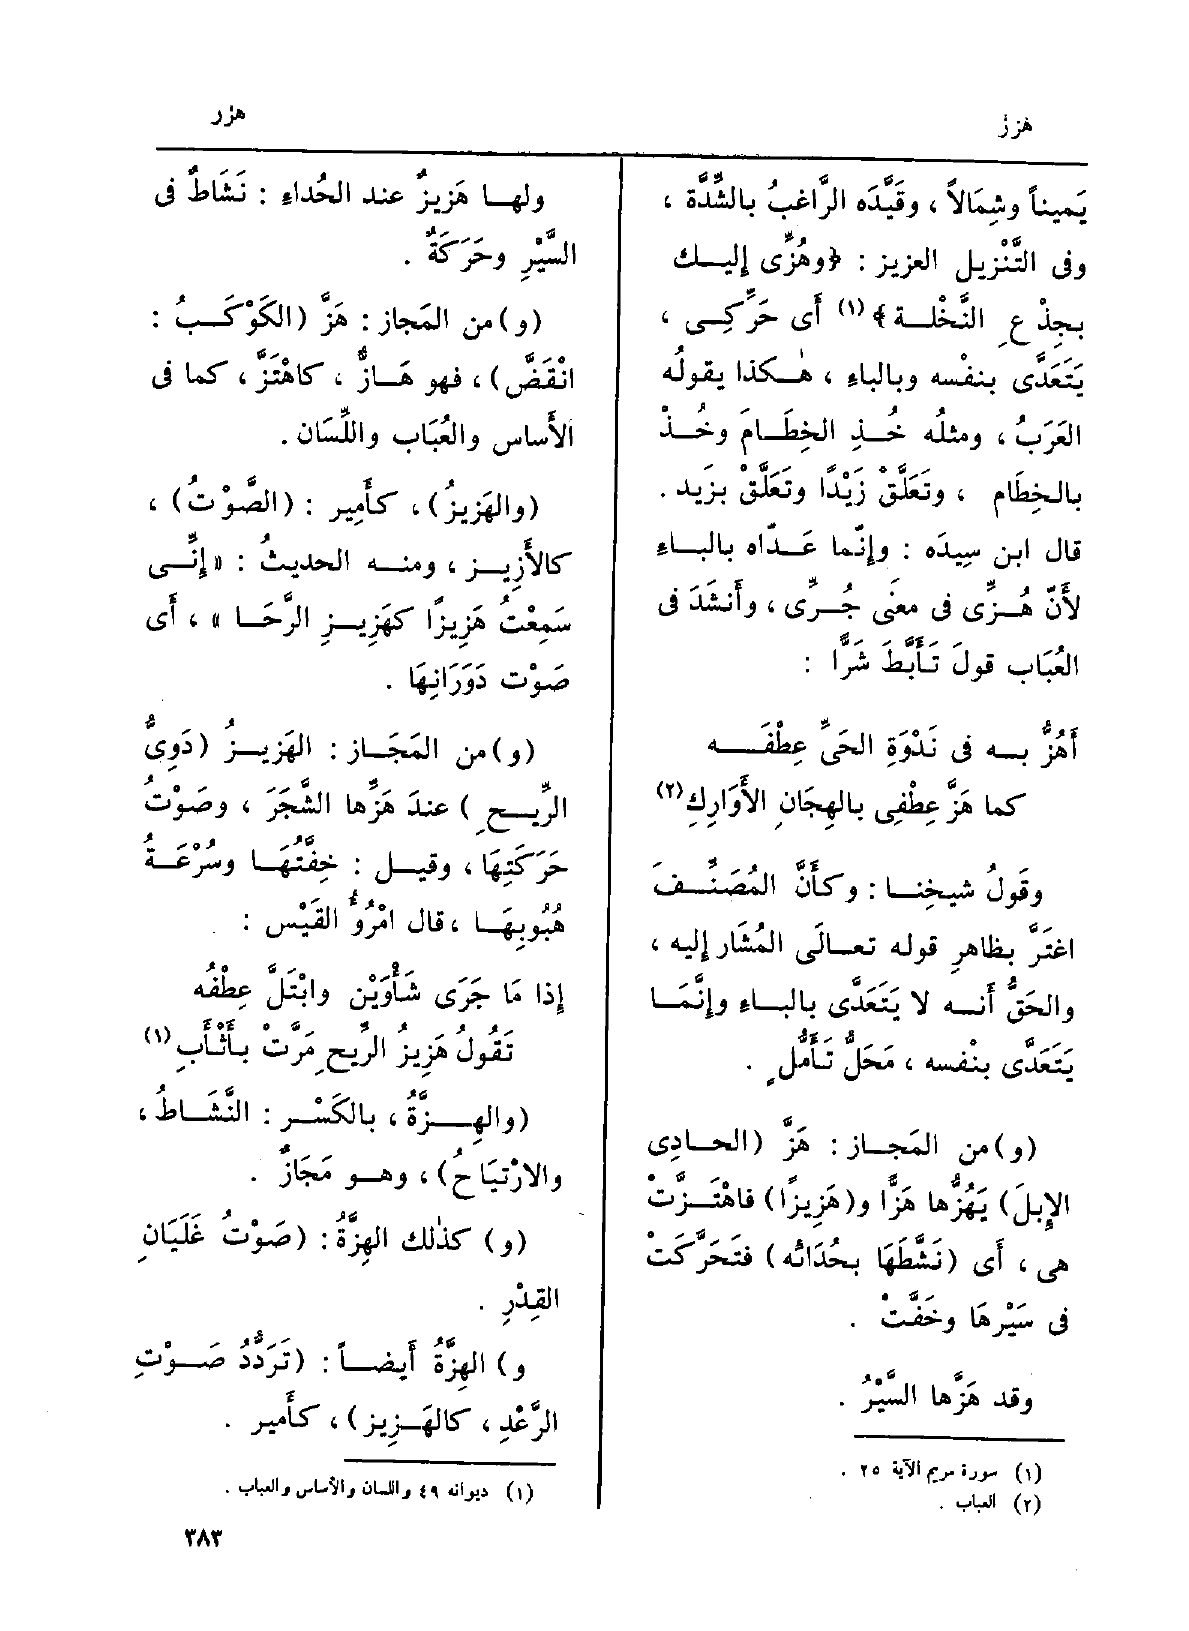 هزز
هزر
يَميناً وشِمَالاً ، وقَيَّدَه الرَّاغبُ بالشِّدَّة ،
وفى التَّنْزيل العزيز : ﴿وهُزِّى إليـك
بجِذْعِ النَّخْلـة﴾ (١) أَى حَرِّكِـى ،
يَتَعَدَّى بنفْسه وبالباءِ ، هٰـكذا يقولُه
العَرَبُ ، ومثلُه خُـذِ الخِطَـامَ وخُـذْ
بالخِطَامِ ، وتَعَلَّقْ زَيْدًا وتَعَلَّقْ بزَيد .
قال ابن سِيدَه : وإِنَّما عَـدَّاه بالبـاءِ
لأَنَّ هُـزِّى فى معنَى جُـرِّى ، وأَنشَدَ فى
العُبَاب قولَ تَـأَبَّطَ شَرًّا :
أَهُزُّ بـه فى نَدْوَةِ الحَىِّ عِطْفَـه
كما هَزَّ عِطْفِى بالهِجَانِ الأَوَارِكِ (٢)
وقَولُ شيخِنـا : وكأَنَّ المُصَنِّـفَ
اغتَرَّ بظاهرِ قوله تعـالَى المُشَار إِليه ،
والحَقُّ أَنـه لا يَتَعَدَّى بالبـاءِ وإِنَّمَـا
يَتَعَدَّى بنفْسه ، مَحَلُّ تَـأَمُّلٍ .
(و) من المَجـاز : هَزَّ (الحَـادِى
الإِبلَ) يَهُزُّها هَزًّا و(هَزِيزًا) فاهْتَـزَّتْ
هى ، أَى (نَشَّطَهَا بحُدَائه) فتَحَرَّكَتْ
فى سَيْرِهَا وخَفَّتْ .
وقد هَزَّها السَّيْرُ .
(١) سورة مريم الآية ٢٥ .
(٢) العباب .
ولهـا هَزِيزٌ عند الحُداءِ : نَشَاطٌ فى
السَّيْرِ وحَرَكَةٌ .
(و) من المَجاز : هَزَّ (الكَوْكَـبُ :
انْقَضَّ) ، فهو هَـازٌّ ، كاهْتَزَّ ، كما فى
الأَساس والعُبَاب واللِّسَان .
(والهَزِيزُ) ، كأَمِير : (الصَّوْتُ) ،
كالأَزِيـز ، ومنـه الحديثُ : « إِنِّـى
سَمِعْتُ هَزِيزًا كهَزِيـزِ الرَّحَـا » ، أَى
صَوْت دَوَرَانِهَا .
(و) من المَجَـاز : الهَزِيـزُ (دَوِىُّ
الرِّيـحِ) عندَ هَزِّها الشَّجَرَ ، وصَوْتُ
حَرَكَتِهَا ، وقيـل : خِفَّتُهَـا وسُرْعَـةُ
هُبُوبِهَـا ، قال امْرُؤُ القَيْس :
إِذا مَا جَرَى شَأْوَيْنِ وابْتَلَّ عِطْفُه
تَقُولُ هَزِيزُ الرِّيحِ مَرَّتْ بـأَثْأَبِ (١)
(والهِـزَّةُ ، بالكَسْـر : النَّشَـاطُ ،
والارْتِيَاحُ) ، وهـو مَجَازٌ .
(و) كذٰلك الهِزَّةُ : (صَوْتُ غَلَيَانِ
القِدْرِ .
و) الهِزَّةُ أَيضـاً : (تَرَدُّدُ صَـوْتِ
الرَّعْدِ ، كالهَـزِيز) ، كأَمير .
(١) ديوانه ٤٩ واللسان والأساس والعباب .
٣٨٣